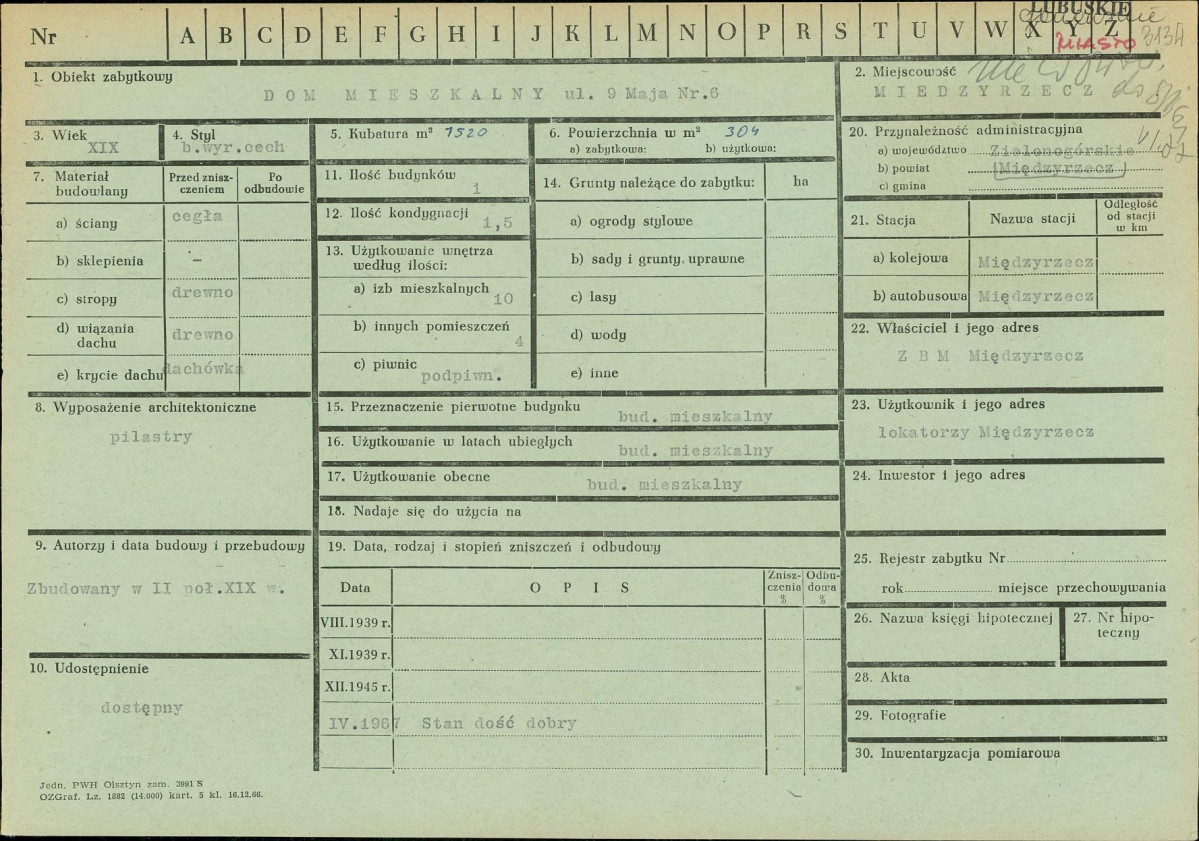 LUBUSKIE
Nr A B C D E F G H I J K L M N O P R S T U V W X Y Z
MIASTO 3134
1. Obiekt zabytkowy
DOM MIESZKALNY ul. 9 Maja Nr.6
2. Miejscowość
MIEDZYRZECZ
3. Wiek
XIX
4. Styl
b.wyr.cech
5. Kubatura m³ 1520
6. Powierzchnia w m² 304
a) zabytkowa: b) użytkowa:
20. Przynależność administracyjna
a) województwo Zielonogórskie
b) powiat (Międzyrzecz)
c) gmina
7. Materiał budowlany
Przed zniszczeniem
Po odbudowie
a) ściany cegła
b) sklepienia –
c) stropy drewno
d) wiązania dachu drewno
e) krycie dachu dachówka
11. Ilość budynków
1
12. Ilość kondygnacji
1,5
13. Użytkowanie wnętrza
według ilości:
a) izb mieszkalnych
10
b) innych pomieszczeń
4
c) piwnic
podpiwn.
14. Grunty należące do zabytku: ha
a) ogrody stylowe
b) sady i grunty uprawne
c) lasy
d) wody
e) inne
21. Stacja
Nazwa stacji
Odległość od stacji w km
a) kolejowa Międzyrzecz
b) autobusowa Międzyrzecz
22. Właściciel i jego adres
Z B M Międzyrzecz
8. Wyposażenie architektoniczne
pilastry
15. Przeznaczenie pierwotne budynku
bud. mieszkalny
16. Użytkowanie w latach ubiegłych
bud. mieszkalny
17. Użytkowanie obecne
bud. mieszkalny
18. Nadaje się do użycia na
23. Użytkownik i jego adres
lokatorzy Międzyrzecz
24. Inwestor i jego adres
9. Autorzy i data budowy i przebudowy
Zbudowany w II poł.XIX w.
19. Data, rodzaj i stopień zniszczeń i odbudowy
Data
O P I S
Zniszczenia %
Odbudowa %
VIII.1939 r.
XI.1939 r.
XII.1945 r.
IV.1967 Stan dość dobry
25. Rejestr zabytku Nr
rok miejsce przechowywania
26. Nazwa księgi hipotecznej
27. Nr hipoteczny
10. Udostępnienie
dostępny
28. Akta
29. Fotografie
30. Inwentaryzacja pomiarowa
Jedn. PWH Olsztyn zam. 3991 S
OZGraf. Lz. 1882 (14.000) kart. 5 kl. 16.12.66.